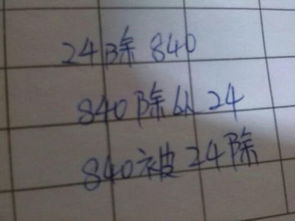 24除840
840除以24
840被24除